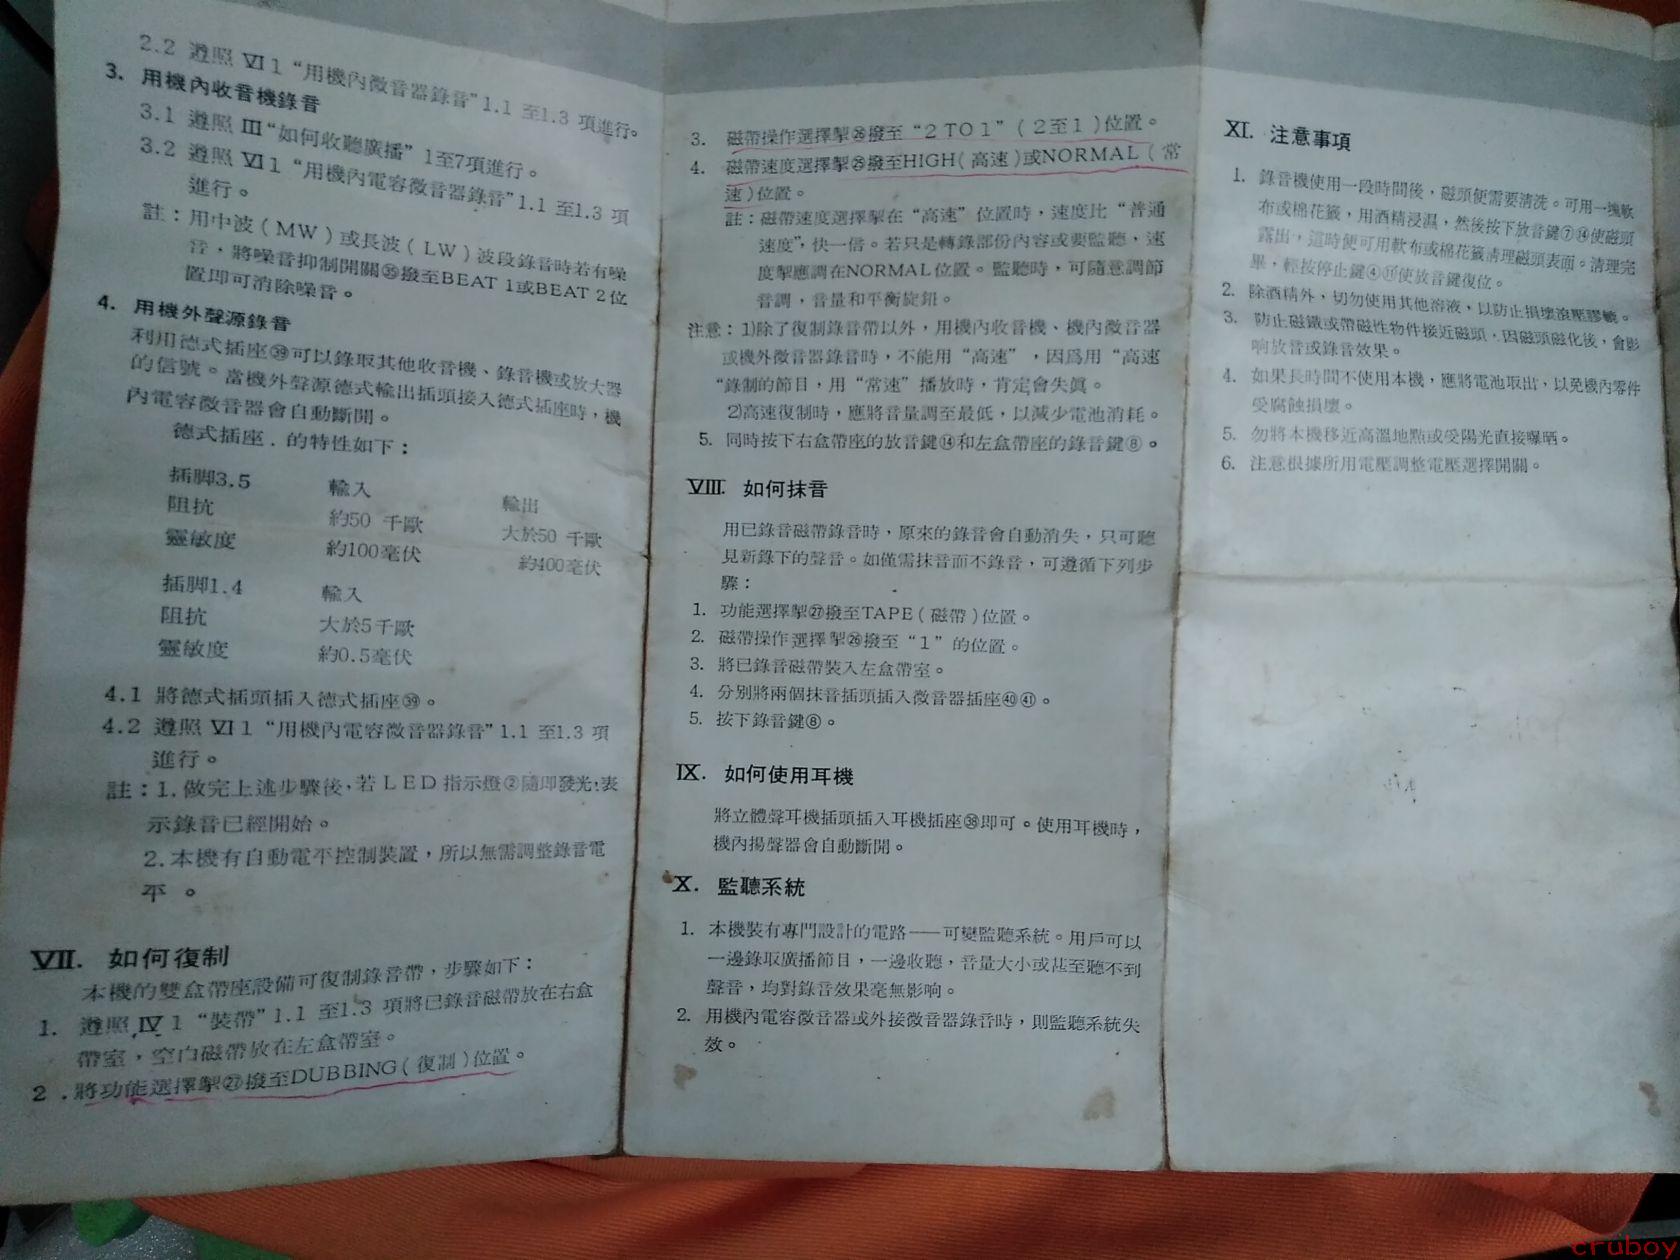 2.2 遵照 Ⅵ 1 “用機內微音器錄音” 1.1 至1.3 項進行。
3. 用機內收音機錄音
3.1 遵照 Ⅲ “如何收聽廣播” 1至7項進行。
3.2 遵照 Ⅵ 1 “用機內電容微音器錄音” 1.1 至1.3 項
進行。
註：用中波（MW）或長波（LW）波段錄音時若有噪
音，將噪音抑制開關㉟撥至BEAT 1或BEAT 2位
置即可消除噪音。
4. 用機外聲源錄音
利用德式插座㊴可以錄取其他收音機、錄音機或放大器
的信號。當機外聲源德式輸出插頭接入德式插座時，機
內電容微音器會自動斷開。
德式插座．的特性如下：
插脚3.5 輸入 輸出
阻抗 約50 千歐 大於50 千歐
靈敏度 約100毫伏 約400毫伏
插脚1.4 輸入
阻抗 大於5千歐
靈敏度 約0.5毫伏
4.1 將德式插頭插入德式插座㊴。
4.2 遵照 Ⅵ 1 “用機內電容微音器錄音” 1.1 至1.3 項
進行。
註：1. 做完上述步驟後，若 LED 指示燈②隨即發光，表
示錄音已經開始。
2. 本機有自動電平控制裝置，所以無需調整錄音電
平。
Ⅶ. 如何復制
本機的雙盒帶座設備可復制錄音帶，步驟如下：
1. 遵照 Ⅳ 1 “裝帶” 1.1 至1.3 項將已錄音磁帶放在右盒
帶室，空白磁帶放在左盒帶室。
2．將功能選擇掣㉗撥至DUBBING（復制）位置。
3. 磁帶操作選擇掣㉖撥至 “2 TO 1”（2至1）位置。
4. 磁帶速度選擇掣㉕撥至HIGH（高速）或NORMAL（常
速）位置。
註：磁帶速度選擇掣在 “高速” 位置時，速度比 “普通
速度”，快一倍。若只是轉錄部份內容或要監聽，速
度掣應調在NORMAL位置。監聽時，可隨意調節
音調，音量和平衡旋鈕。
注意：1)除了復制錄音帶以外，用機內收音機、機內微音器
或機外微音器錄音時，不能用 “高速” ，因爲用 “高速
“錄制的節目，用 “常速” 播放時，肯定會失眞。
2)高速復制時，應將音量調至最低，以減少電池消耗。
5. 同時按下右盒帶座的放音鍵⑭和左盒帶座的錄音鍵⑧。
Ⅷ. 如何抹音
用已錄音磁帶錄音時，原來的錄音會自動消失，只可聽
見新錄下的聲音。如僅需抹音而不錄音，可遵循下列步
驟：
1. 功能選擇掣㉗撥至TAPE（磁帶）位置。
2. 磁帶操作選擇掣㉖撥至 “1” 的位置。
3. 將已錄音磁帶裝入左盒帶室。
4. 分別將兩個抹音插頭插入微音器插座㊵㊶。
5. 按下錄音鍵⑧。
Ⅸ. 如何使用耳機
將立體聲耳機插頭插入耳機插座㊳即可。使用耳機時，
機內揚聲器會自動斷開。
Ⅹ. 監聽系統
1. 本機裝有專門設計的電路——可變監聽系統。用戶可以
一邊錄取廣播節目，一邊收聽，音量大小或甚至聽不到
聲音，均對錄音效果毫無影响。
2. 用機內電容微音器或外接微音器錄音時，則監聽系統失
效。
Ⅺ. 注意事項
1. 錄音機使用一段時間後，磁頭便需要清洗。可用一塊軟
布或棉花籤，用酒精浸濕，然後按下放音鍵⑦⑭使磁頭
露出，這時便可用軟布或棉花籤清理磁頭表面。清理完
畢，輕按停止鍵④⑪使放音鍵復位。
2. 除酒精外，切勿使用其他溶液，以防止損壞滾壓膠轆。
3. 防止磁鐵或帶磁性物件接近磁頭，因磁頭磁化後，會影
响放音或錄音效果。
4. 如果長時間不使用本機，應將電池取出，以免機內零件
受腐蝕損壞。
5. 勿將本機移近高溫地點或受陽光直接曝晒。
6. 注意根據所用電壓調整電壓選擇開關。
cruboy